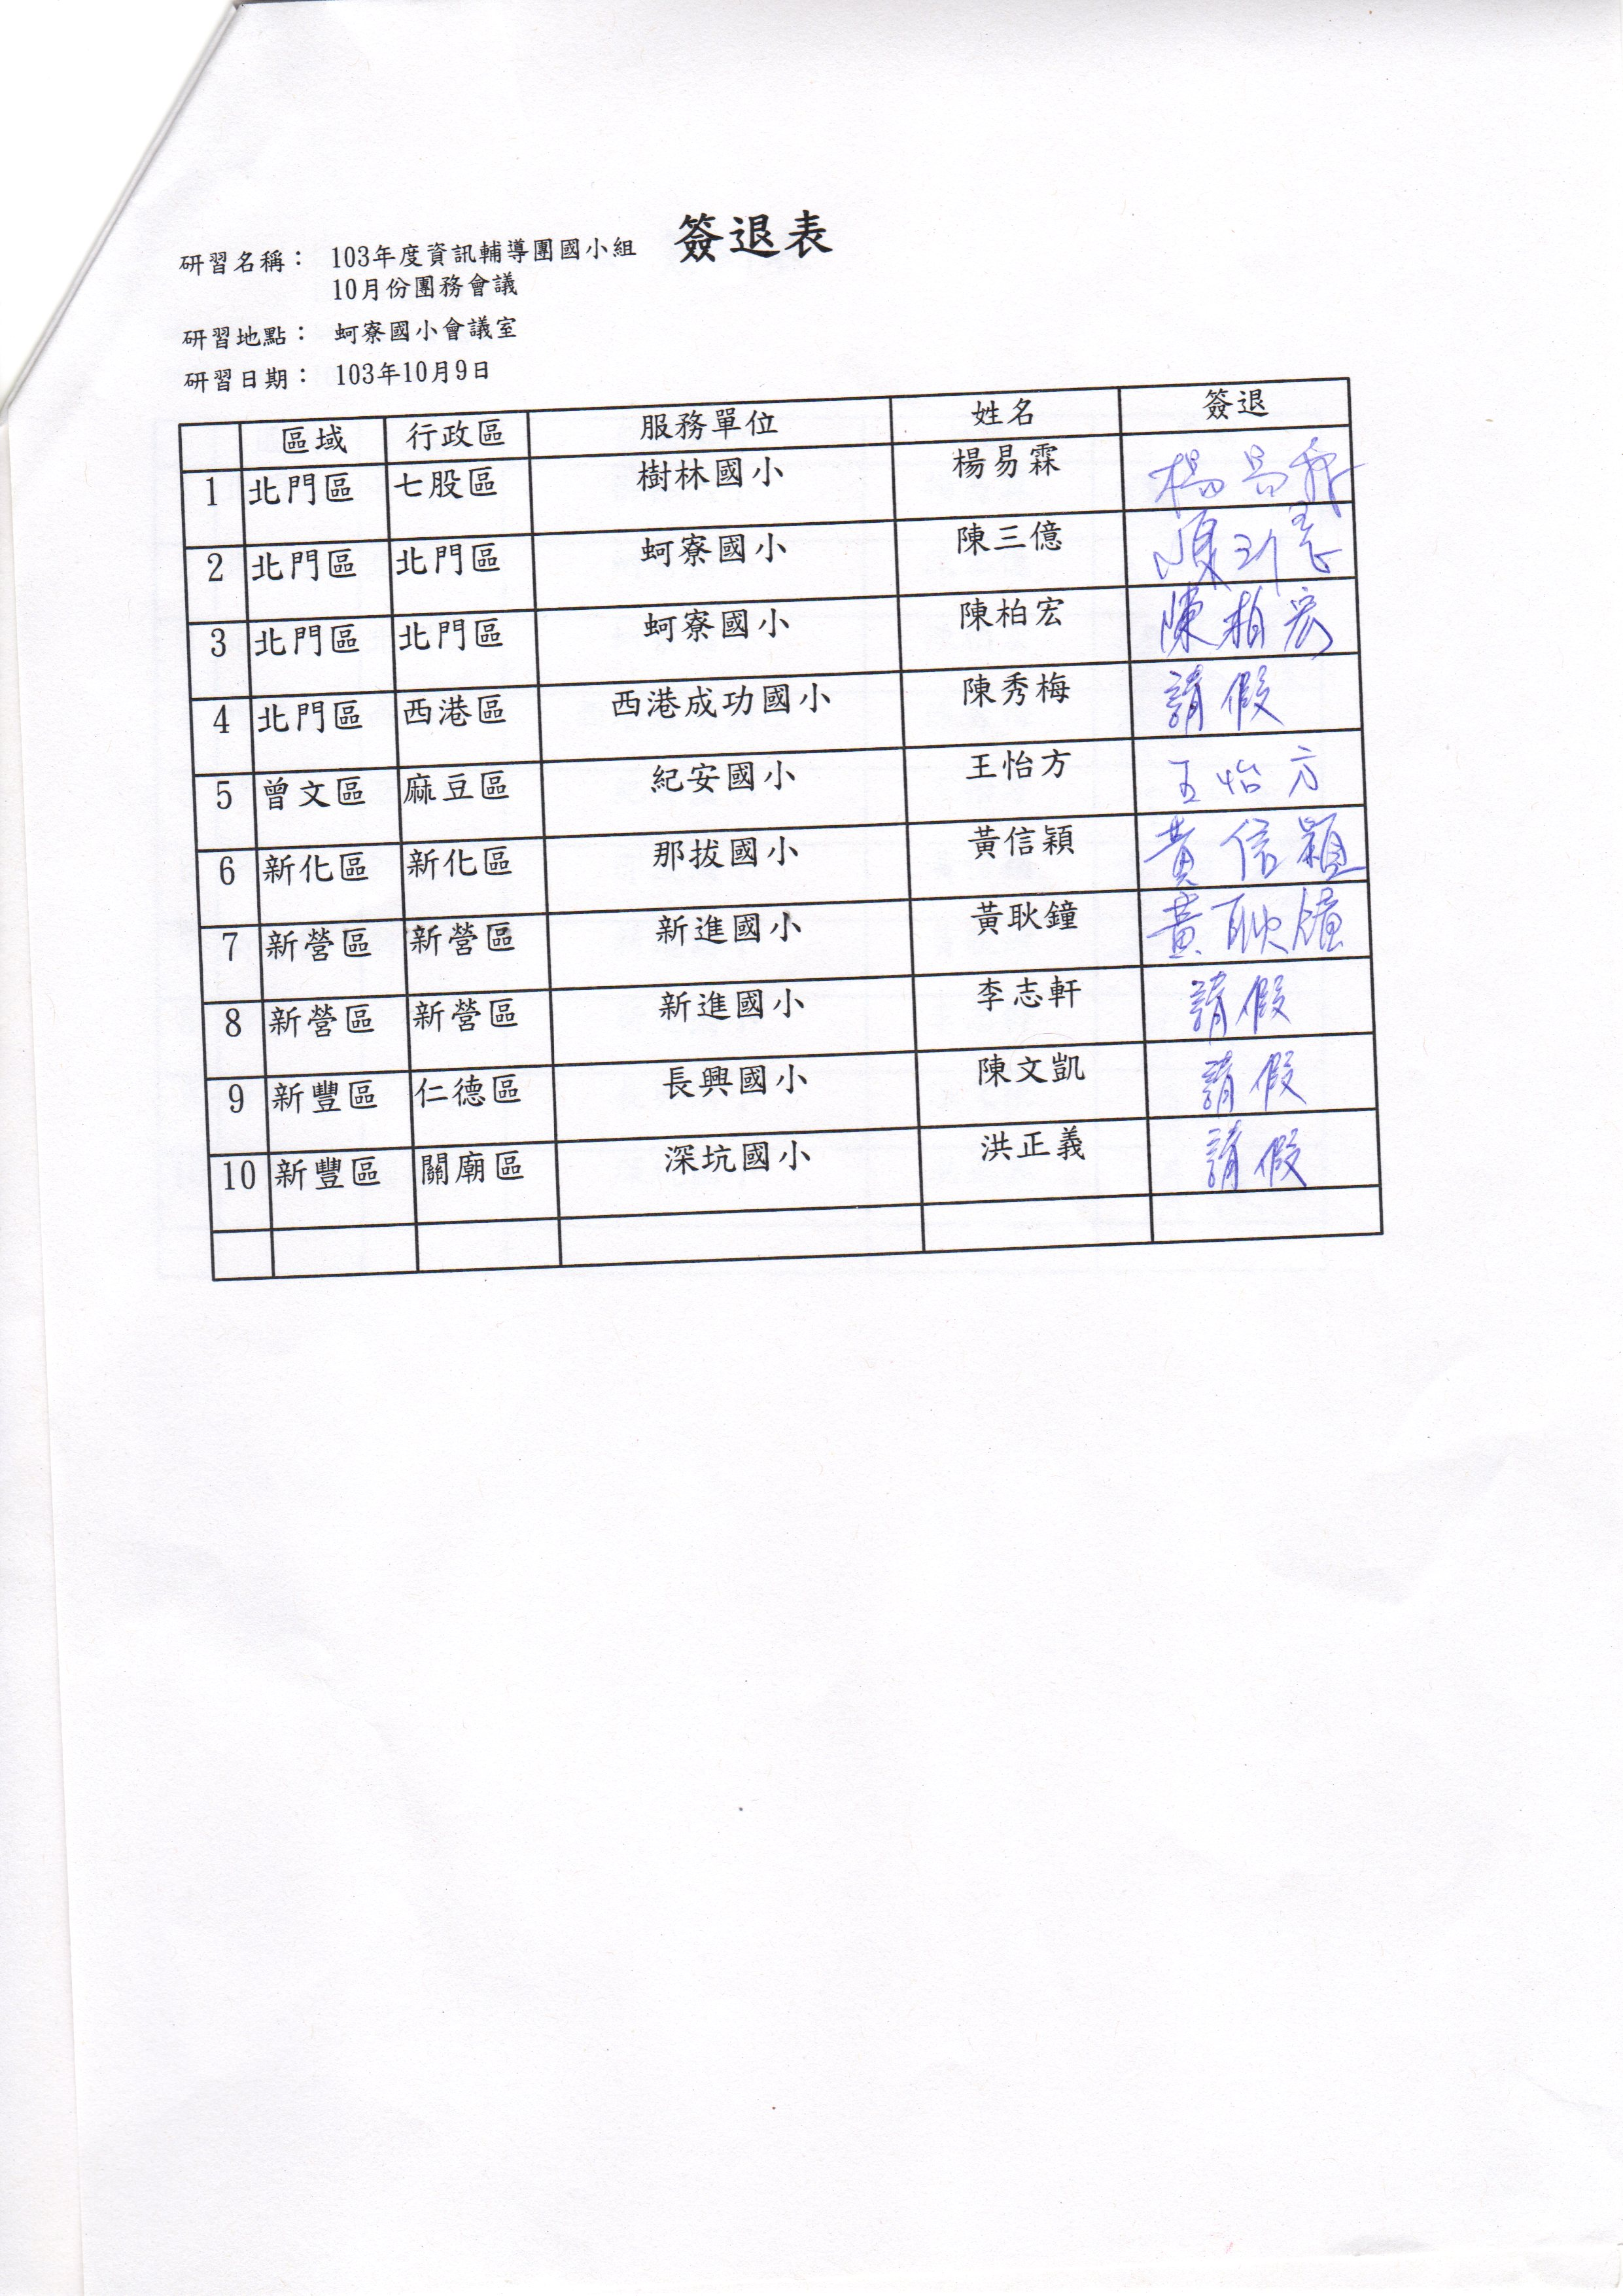 簽退表
研習名稱： 103年度資訊輔導團國小組
10月份團務會議
研習地點： 蚵寮國小會議室
研習日期： 103年10月9日
區域 行政區 服務單位 姓名 簽退
1 北門區 七股區 樹林國小 楊易霖 楊易霖
2 北門區 北門區 蚵寮國小 陳三億 陳三億
3 北門區 北門區 蚵寮國小 陳柏宏 陳柏宏
4 北門區 西港區 西港成功國小 陳秀梅 請假
5 曾文區 麻豆區 紀安國小 王怡方 王怡方
6 新化區 新化區 那拔國小 黃信穎 黃信穎
7 新營區 新營區 新進國小 黃耿鐘 黃耿鐘
8 新營區 新營區 新進國小 李志軒 請假
9 新豐區 仁德區 長興國小 陳文凱 請假
10 新豐區 關廟區 深坑國小 洪正義 請假